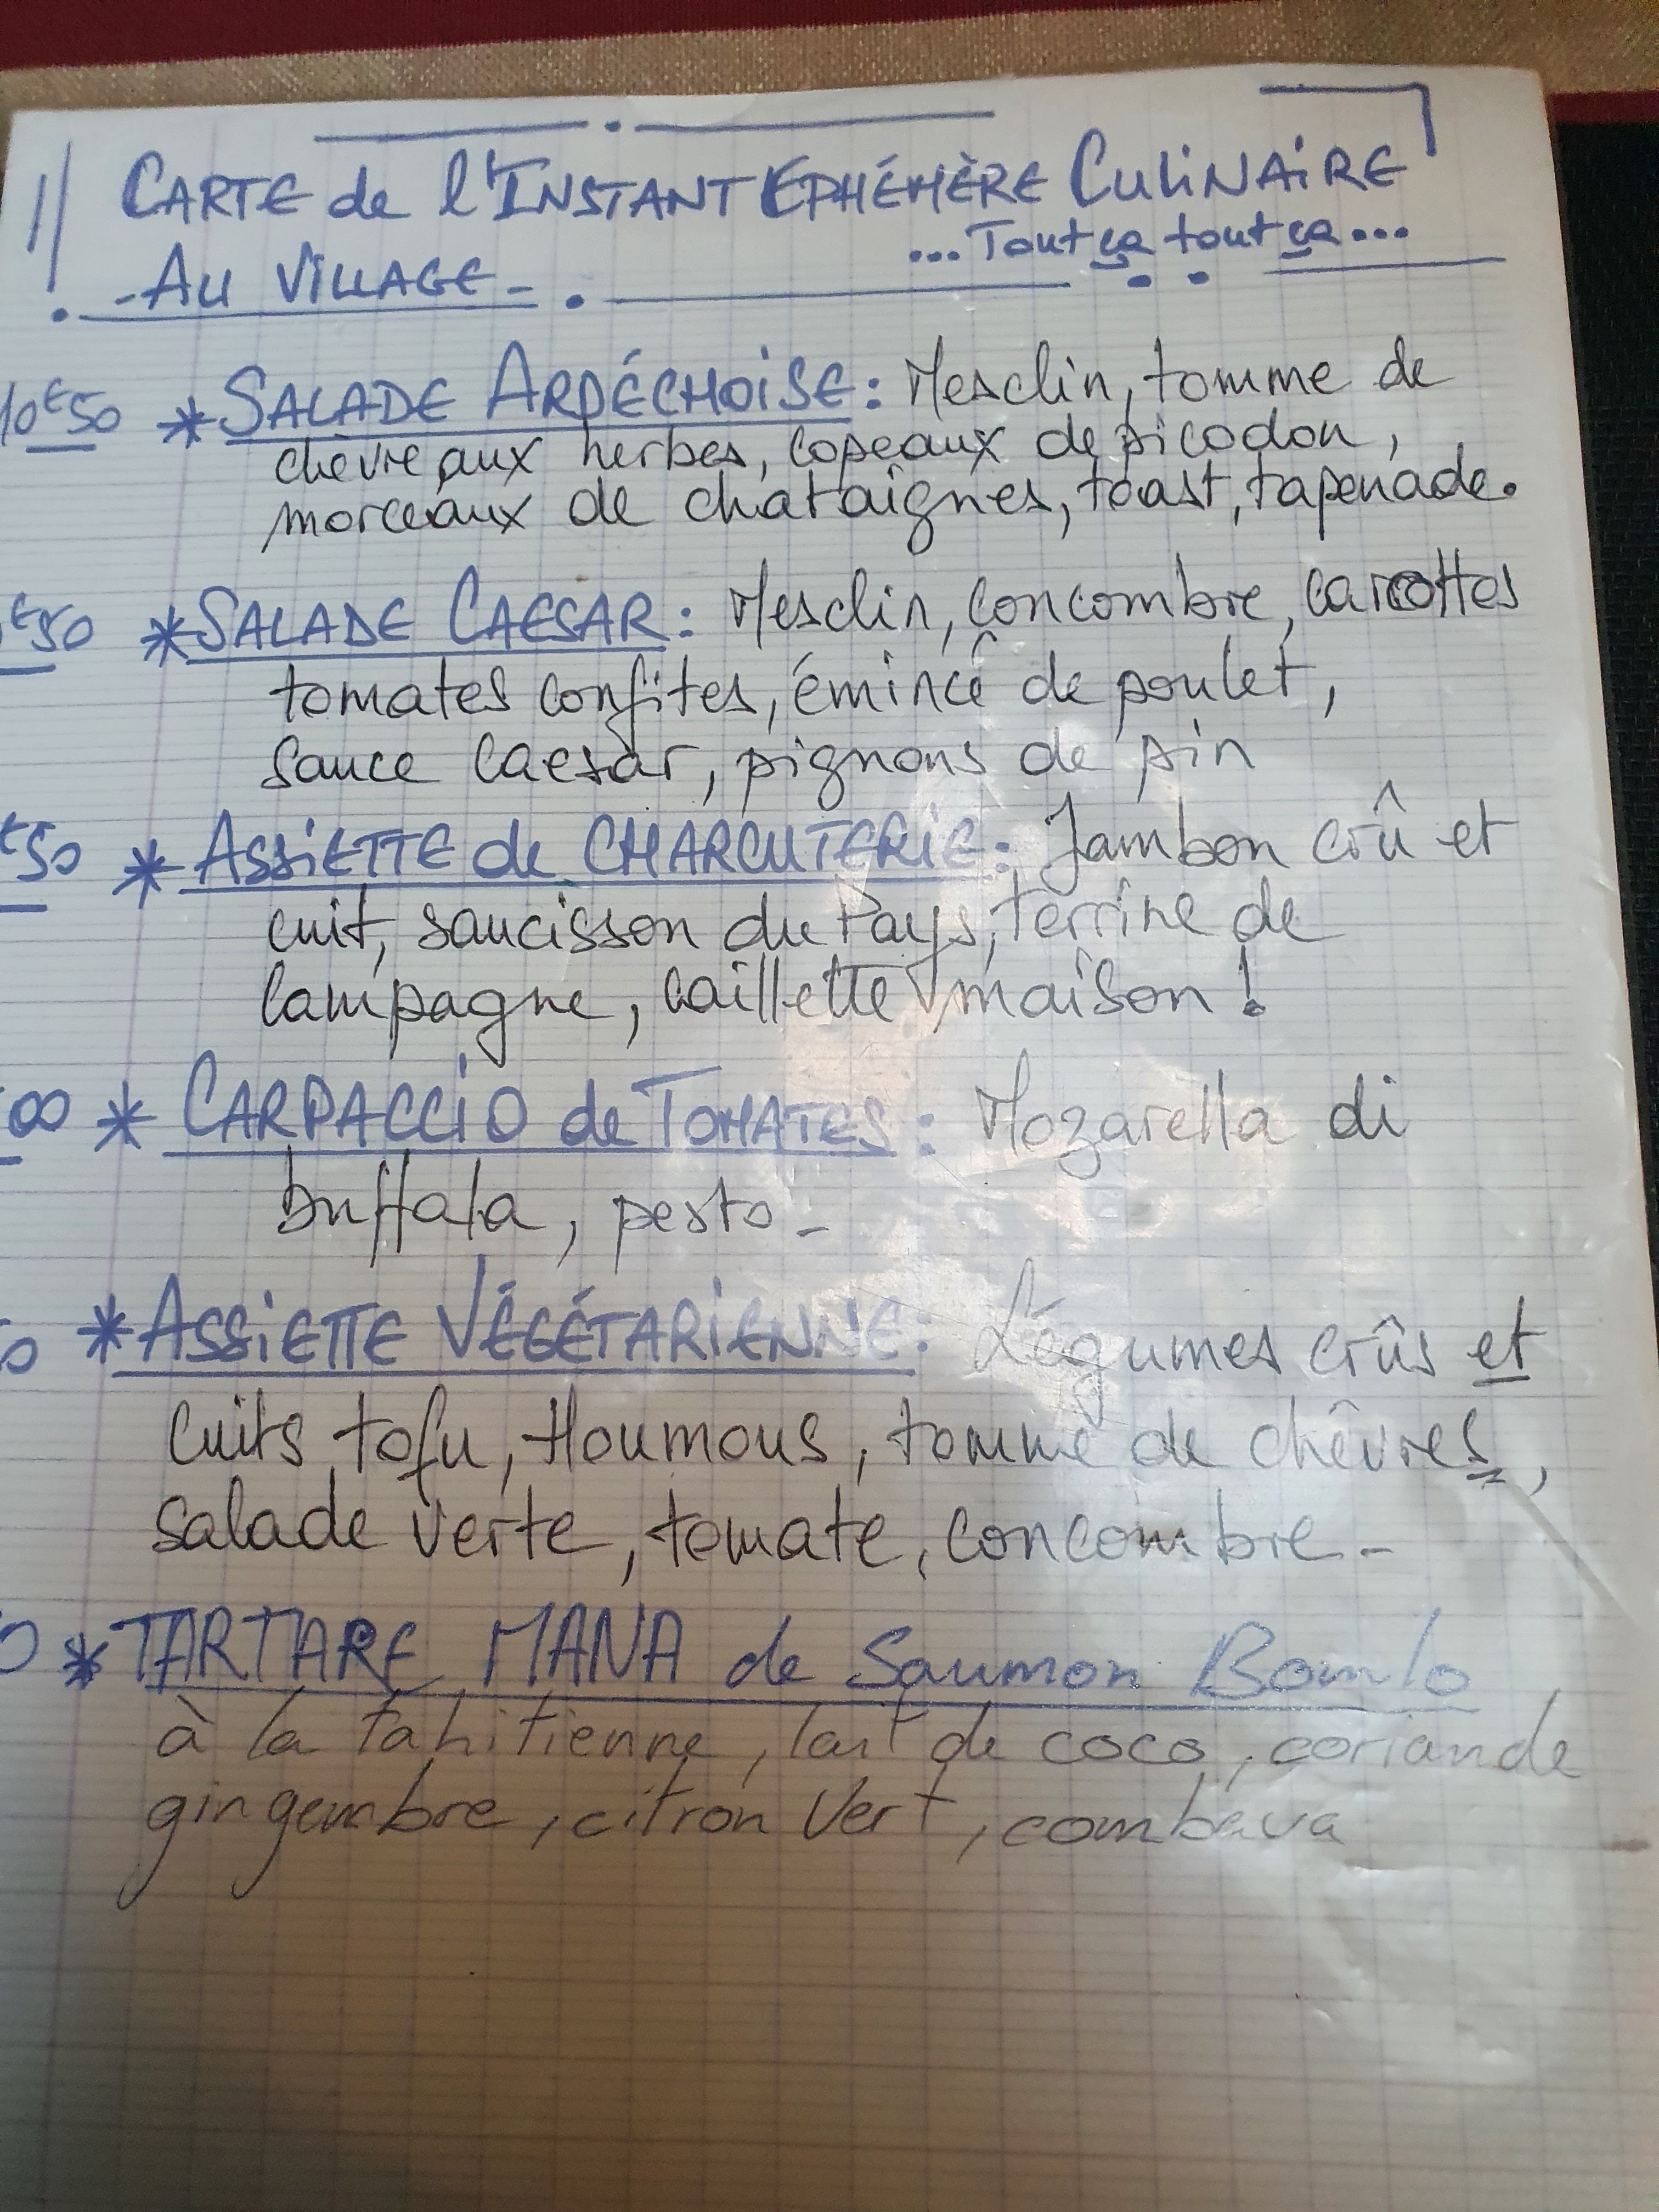 CARTE de l'INSTANT ÉPHÉMÈRE CULiNAiRE
...Tout ça tout ça...
- AU ViLLAGE -
10€50 * SALADE ARDÉCHOiSE : Mesclin, tomme de
chèvre aux herbes, copeaux de picodon,
morceaux de chataignes, toast, tapenade.
€50 * SALADE CAESAR : Mesclin, concombre, carottes
tomates confites, émincé de poulet,
sauce caesar, pignons de pin
€50 * ASSiETTE de CHARCUTERiE : Jambon crû et
cuit, saucisson du Pays, terrine de
campagne, caillette maison !
00 * CARPACCiO de TOMATES : Mozarella di
buffala, pesto -
0 * ASSiETTE VÉGÉTARiENNE : Légumes crûs et
cuits, tofu, Houmous, tomme de chêvres,
salade verte, tomate, concombre -
0 * TARTARE MANA de Saumon Bomlo
à la tahitienne, lait de coco, coriande
gingembre, citron vert, combava